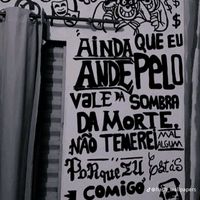 "AINDA QUE EU
ANDE PELO
VALE DA SOMBRA
DA MORTE,
NÃO TEMEREI MAL
ALGUM
PORQUE TU ESTÁS
COMIGO